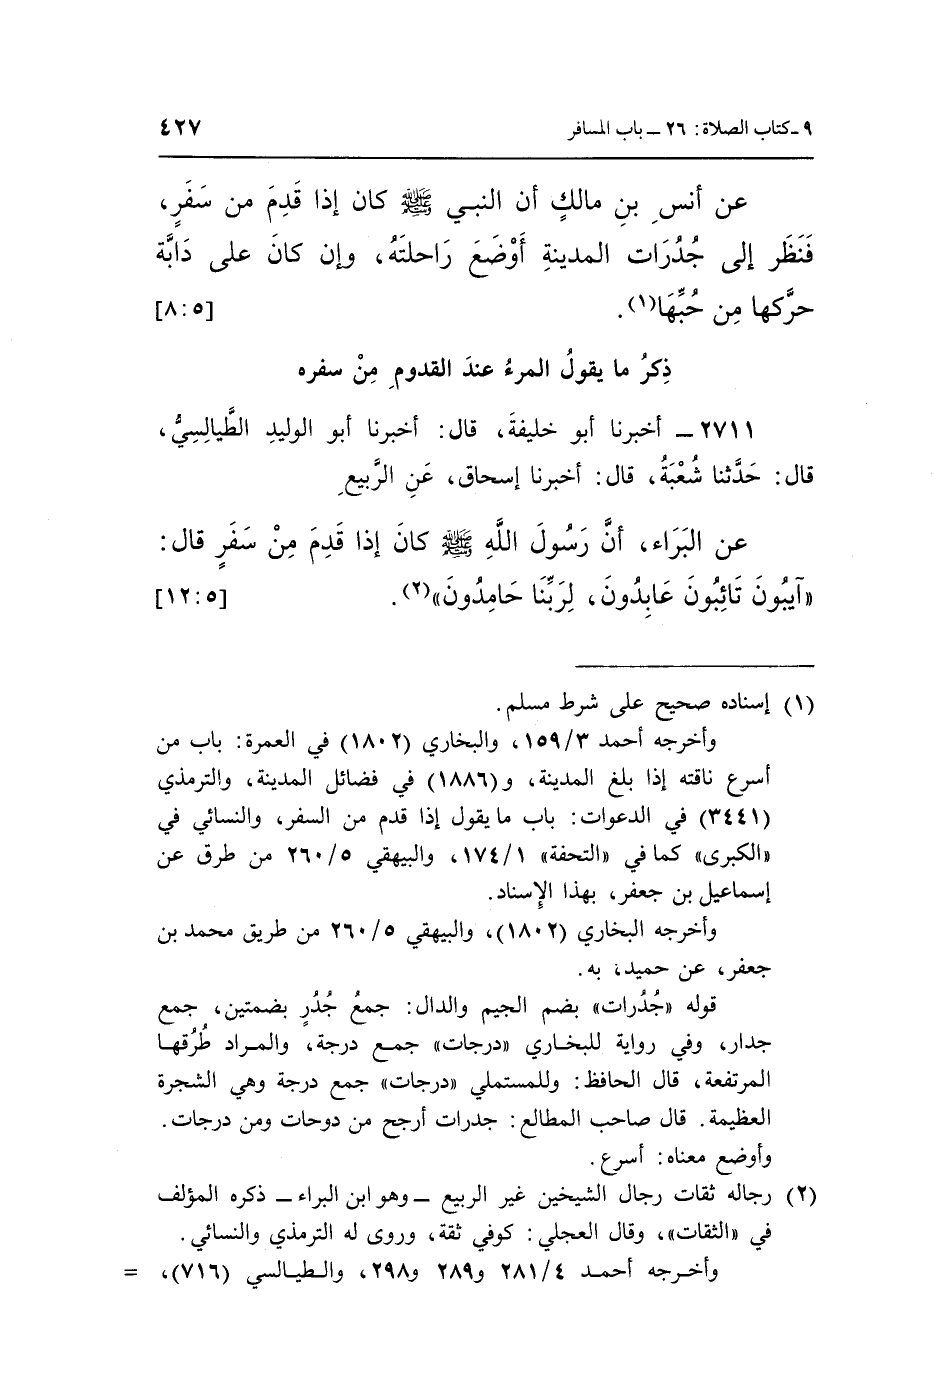 ٩ ـ كتاب الصلاة: ٢٦ ــ باب المسافر ٤٢٧
عن أنسِ بنِ مالكٍ أن النبي ﷺ كان إذا قَدِمَ من سَفَرٍ،
فَنَظَر إلى جُدُرَات المدينةِ أَوْضَعَ رَاحلتَهُ، وإن كانَ على دَابَّة
حرَّكها مِن حُبِّهَا(١). [٨:٥]
ذِكرُ ما يقولُ المرءُ عندَ القدومِ مِنْ سفره
٢٧١١ ــ أخبرنا أبو خليفةَ، قال: أخبرنا أبو الوليدِ الطَّيالِسِيُّ،
قال: حَدَّثنا شُعْبَةُ، قال: أخبرنا إسحاق، عَنِ الرَّبيعِ
عن البَرَاء، أنَّ رَسُولَ اللَّهِ ﷺ كانَ إذا قَدِمَ مِنْ سَفَرٍ قال:
«آيبُونَ تَائِبُونَ عَابِدُونَ، لِرَبِّنَا حَامِدُونَ»(٢). [١٢:٥]
(١) إسناده صحيح على شرط مسلم.
وأخرجه أحمد ١٥٩/٣، والبخاري (١٨٠٢) في العمرة: باب من
أسرع ناقته إذا بلغ المدينة، و(١٨٨٦) في فضائل المدينة، والترمذي
(٣٤٤١) في الدعوات: باب ما يقول إذا قدم من السفر، والنسائي في
«الكبرى» كما في «التحفة» ١٧٤/١، والبيهقي ٢٦٠/٥ من طرق عن
إسماعيل بن جعفر، بهذا الإسناد.
وأخرجه البخاري (١٨٠٢)، والبيهقي ٢٦٠/٥ من طريق محمد بن
جعفر، عن حميد، به.
قوله «جُدُرات» بضم الجيم والدال: جمعُ جُدُرٍ بضمتين، جمع
جدار، وفي رواية للبخاري «درجات» جمع درجة، والمراد طُرُقها
المرتفعة، قال الحافظ: وللمستملي «درجات» جمع درجة وهي الشجرة
العظيمة. قال صاحب المطالع: جدرات أرجح من دوحات ومن درجات.
وأوضع معناه: أسرع.
(٢) رجاله ثقات رجال الشيخين غير الربيع ــ وهو ابن البراء ــ ذكره المؤلف
في «الثقات»، وقال العجلي: كوفي ثقة، وروى له الترمذي والنسائي.
وأخرجه أحمد ٢٨١/٤ و٢٨٩ و٢٩٨، والطيالسي (٧١٦)، =